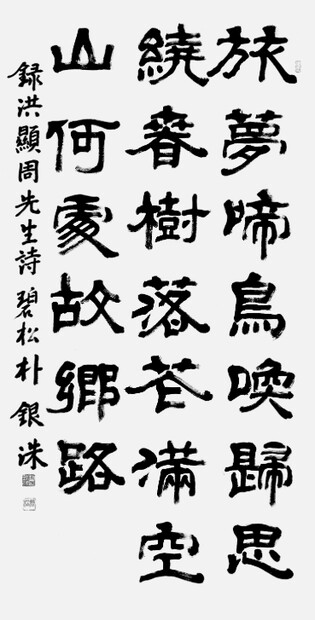 旅夢啼鳥喚歸思
繞春樹落花滿空
山何處故鄉路
録洪顯周先生詩 碧松 朴銀洙